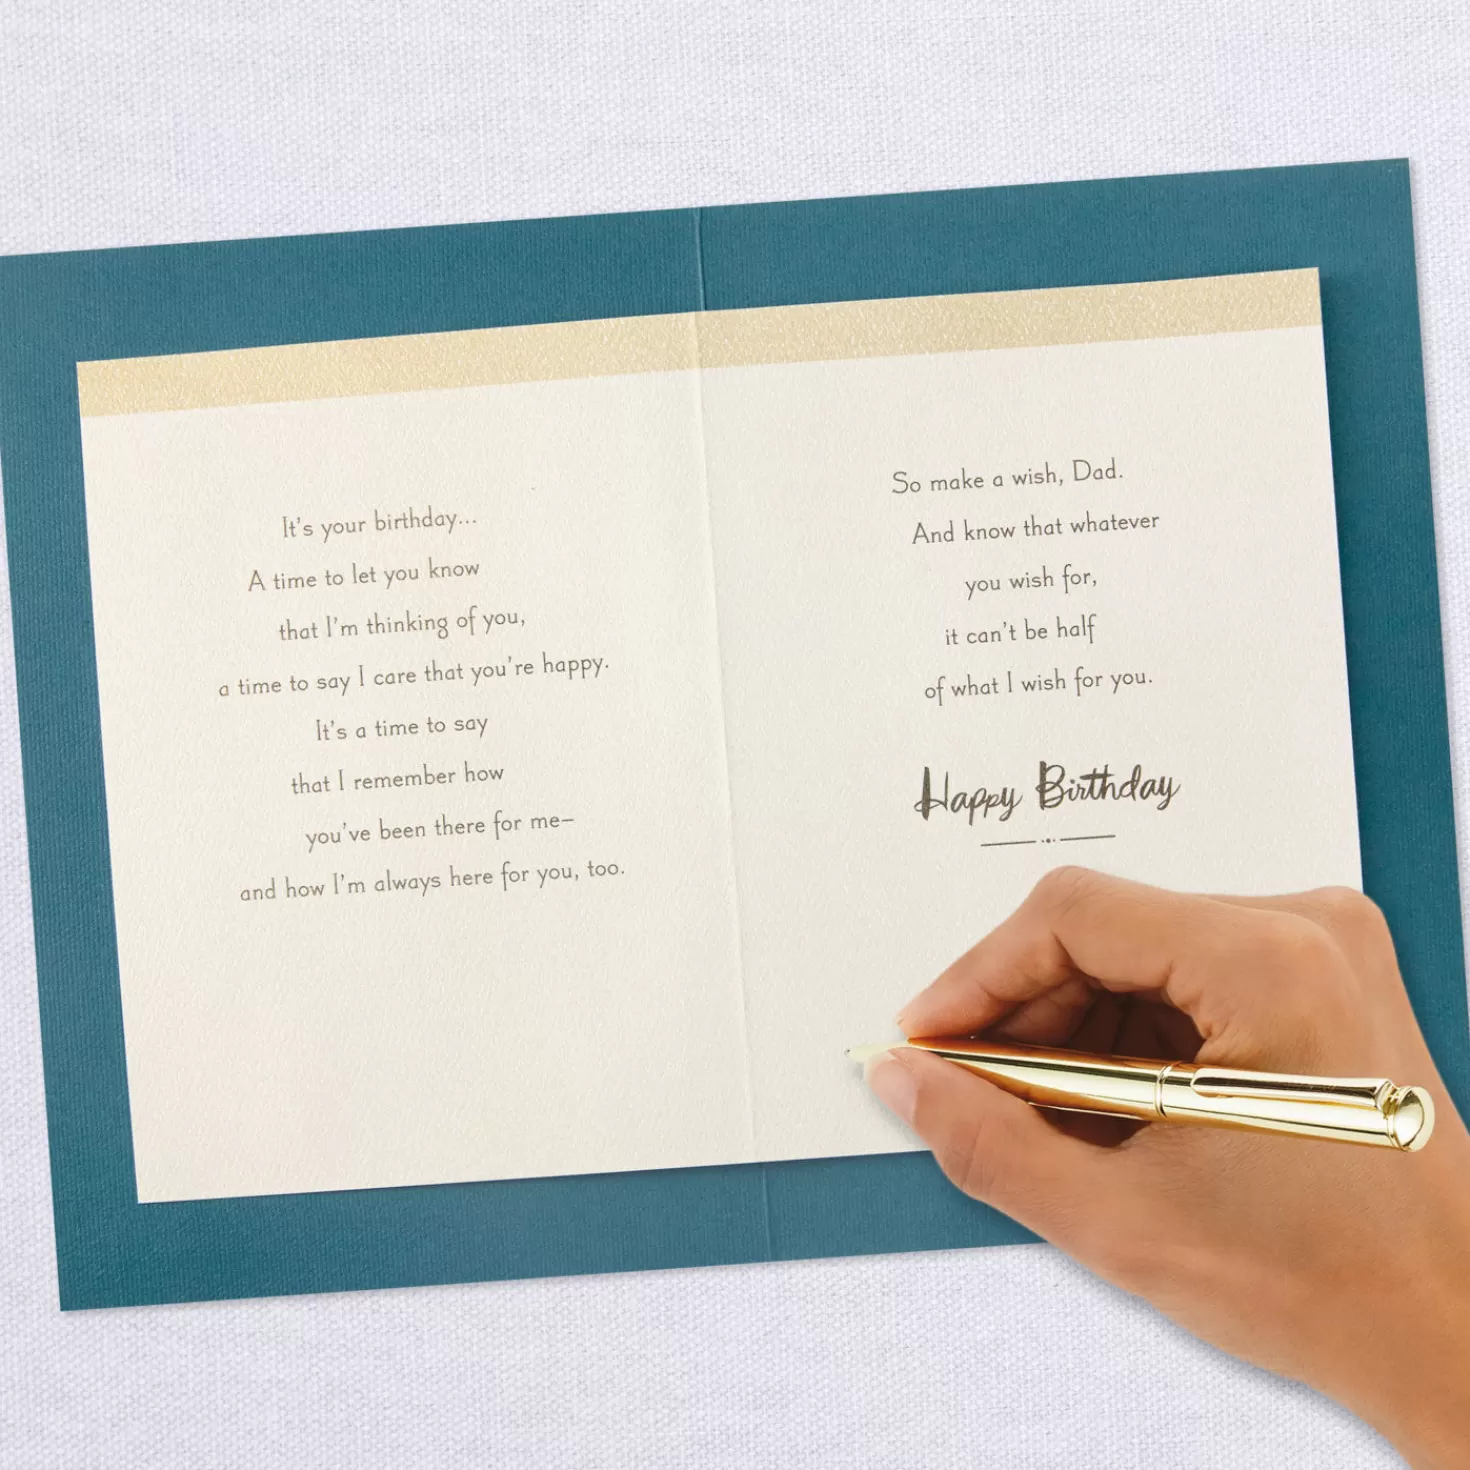 It's your birthday...
A time to let you know
that I'm thinking of you,
a time to say I care that you're happy.
It's a time to say
that I remember how
you've been there for me–
and how I'm always here for you, too.
So make a wish, Dad.
And know that whatever
you wish for,
it can't be half
of what I wish for you.
Happy Birthday